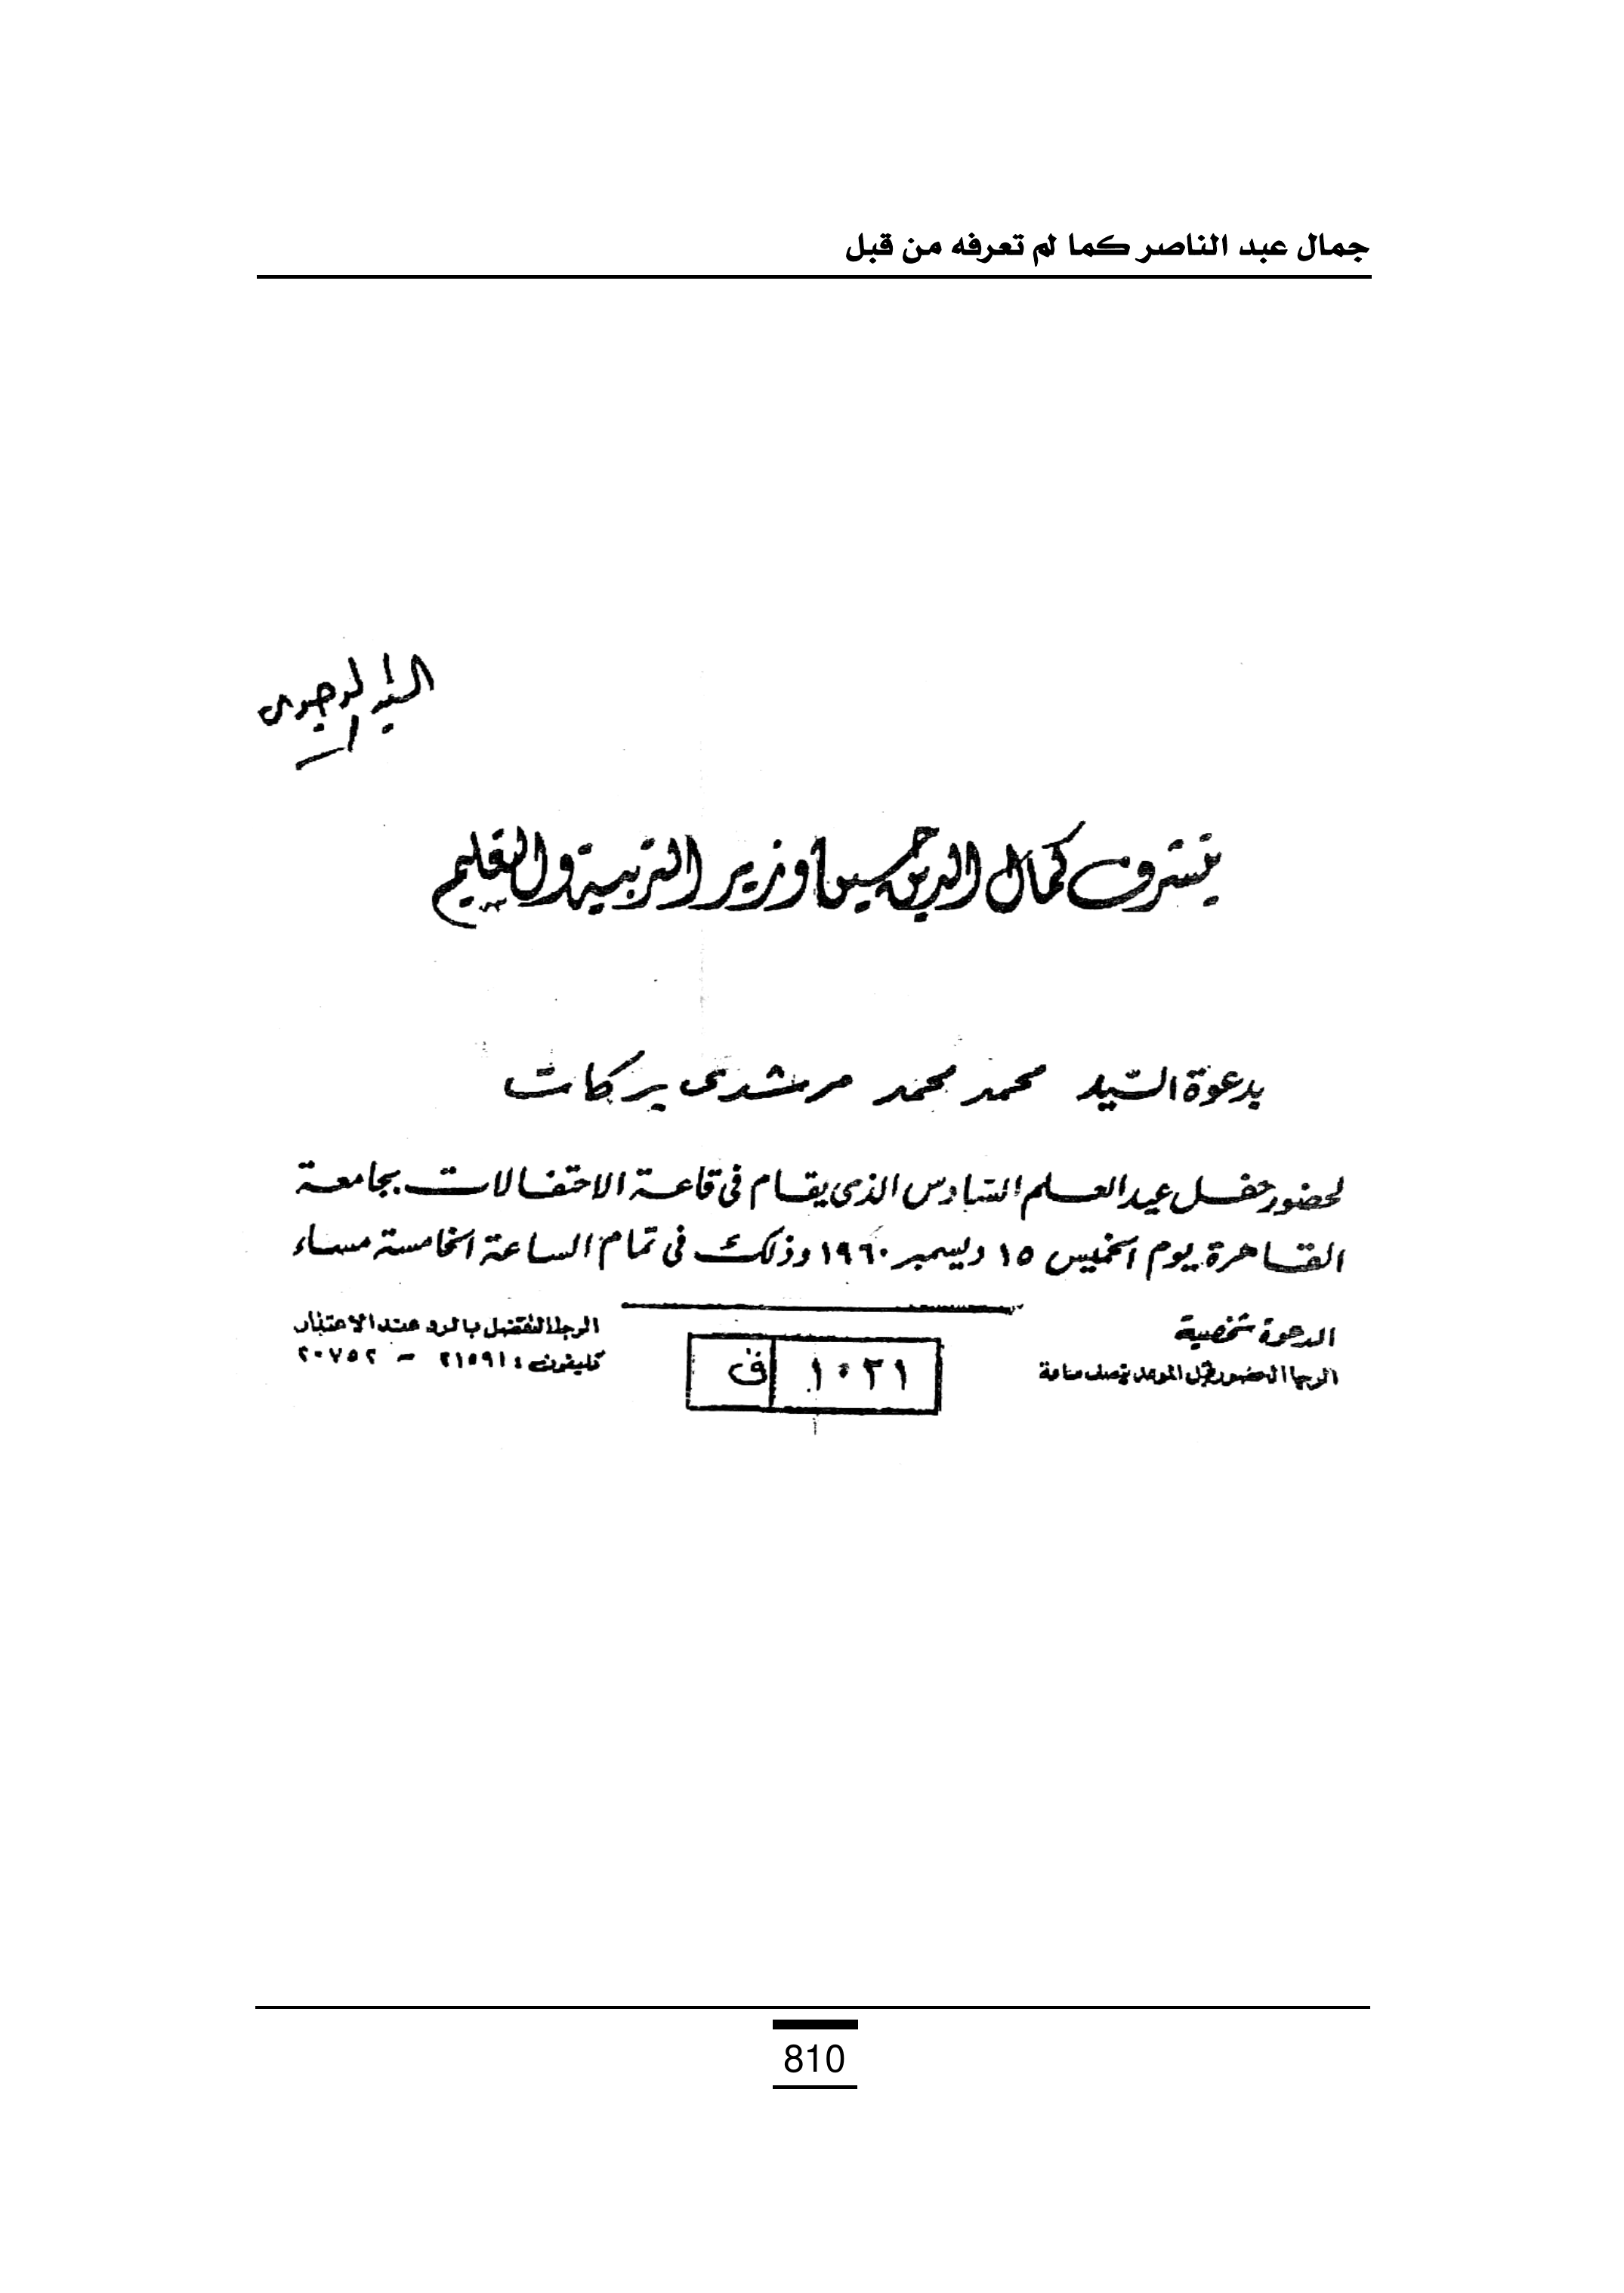 جمال عبد الناصر كما لم تعرفه من قبل
السيد
يتشرف كمال الدين حسين وزير التربية والتعليم
بدعوة السيد محمد محمد مرشدى بركات
لحضور حفل عيد العلم السادس الذى يقام فى قاعة الاحتفالات بجامعة
القاهرة يوم الخميس ١٥ ديسمبر ١٩٦٠ وذلك فى تمام الساعة الخامسة مساء
الدعوة شخصية
الرجا الحضور قبل الموعد بنصف ساعة
١٠٢١ ف
الرجا التفضل بالرد عند الاعتذار
تليفون : ٢١٥٩١ - ٢٠٧٥٢
810